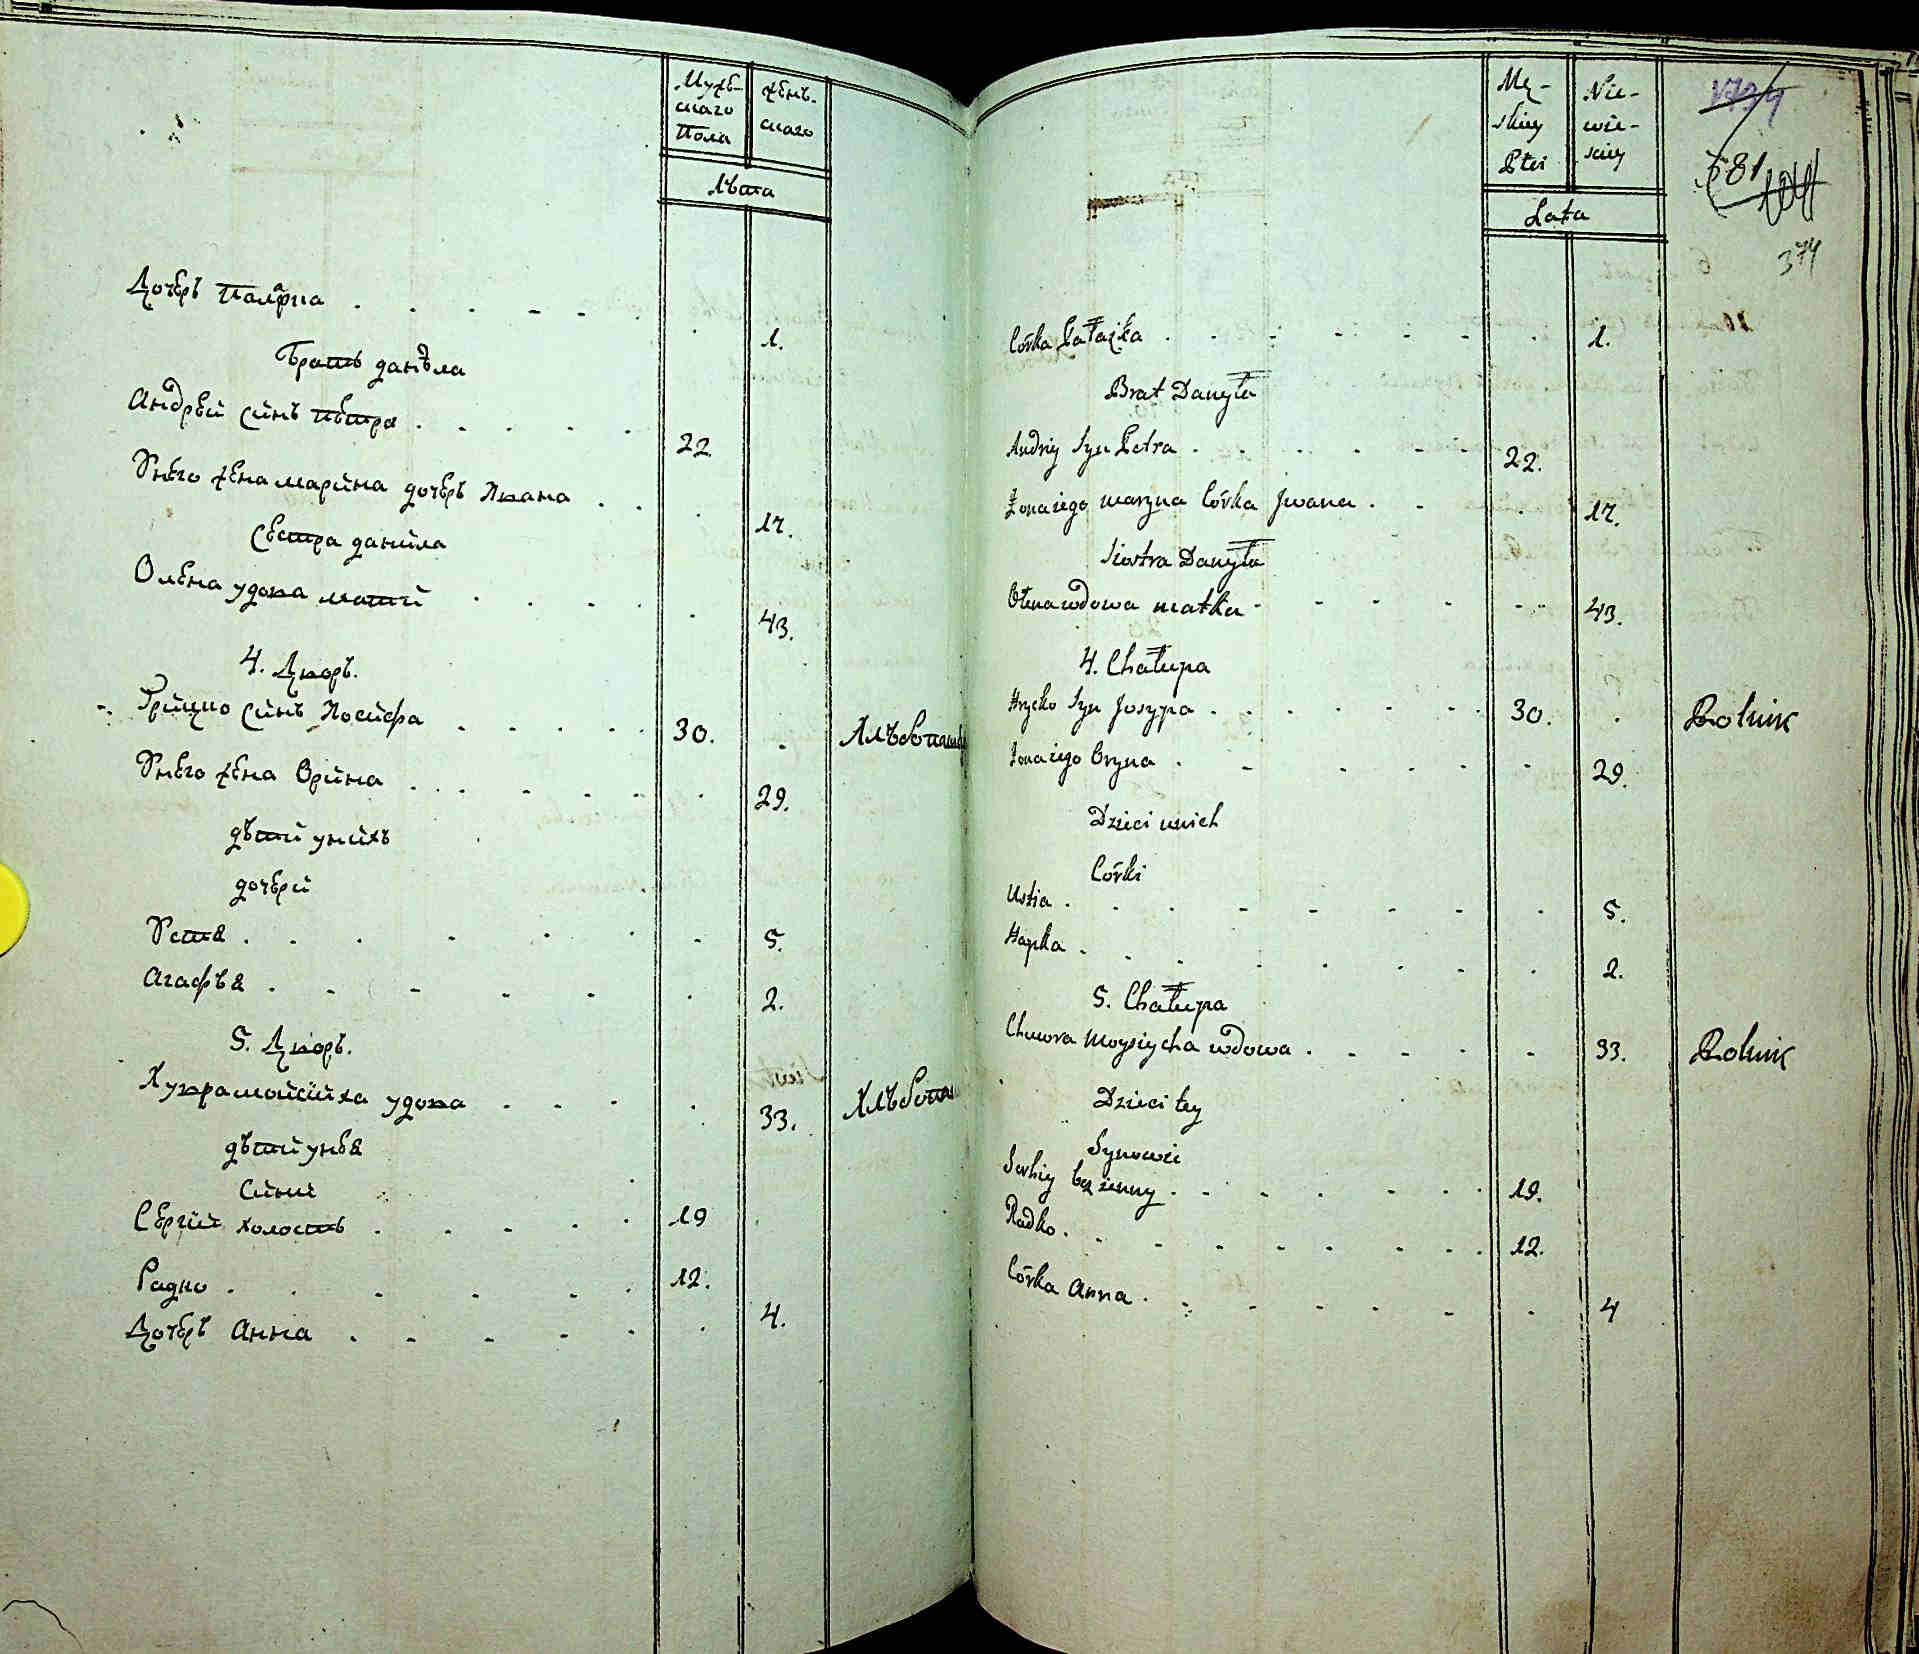 Мужеского Пола
женскаго
Лѣта
Дочерь Палажка
1.
братъ данѣла
Андрей синъ петра
22
Унего жена марина дочерь Ивана
17.
сестра данила
Олена удова матий
43.
4. Дворъ.
Грицко синъ Иосифа
30.
Хлѣбопаш
Унего жена Орина
29.
дѣти унихъ
дочери
Устя
5.
Агафья
2.
5. Дворъ.
Хувра мойсииха удова
33.
Хлѣбопаш
дѣти унея
Сини
Сергий холостъ
19
Радко
12.
Дочерь Анна
4.
Mę-
skiey
Płci
Nie-
wie-
sciey
Lata
581
374
Córka Pałażka
1.
Brat Danyła
Andriy Syn Petra
22.
Żona iego maryna Córka Jwana
17.
Siostra Danyła
Ołena wdowa matka
43.
4. Chałupa
Hrycko Syn Josypa
30.
Rolnik
Żona iego Oryna
29.
Dzieci unich
Córki
Ustia
5.
Hapka
2.
5. Chałupa
Chuwra Moysiycha wdowa
33.
Rolnik
Dzieci tey
Synowie
Serhiy bezżenny
19.
Radko
12.
Córka Anna
4